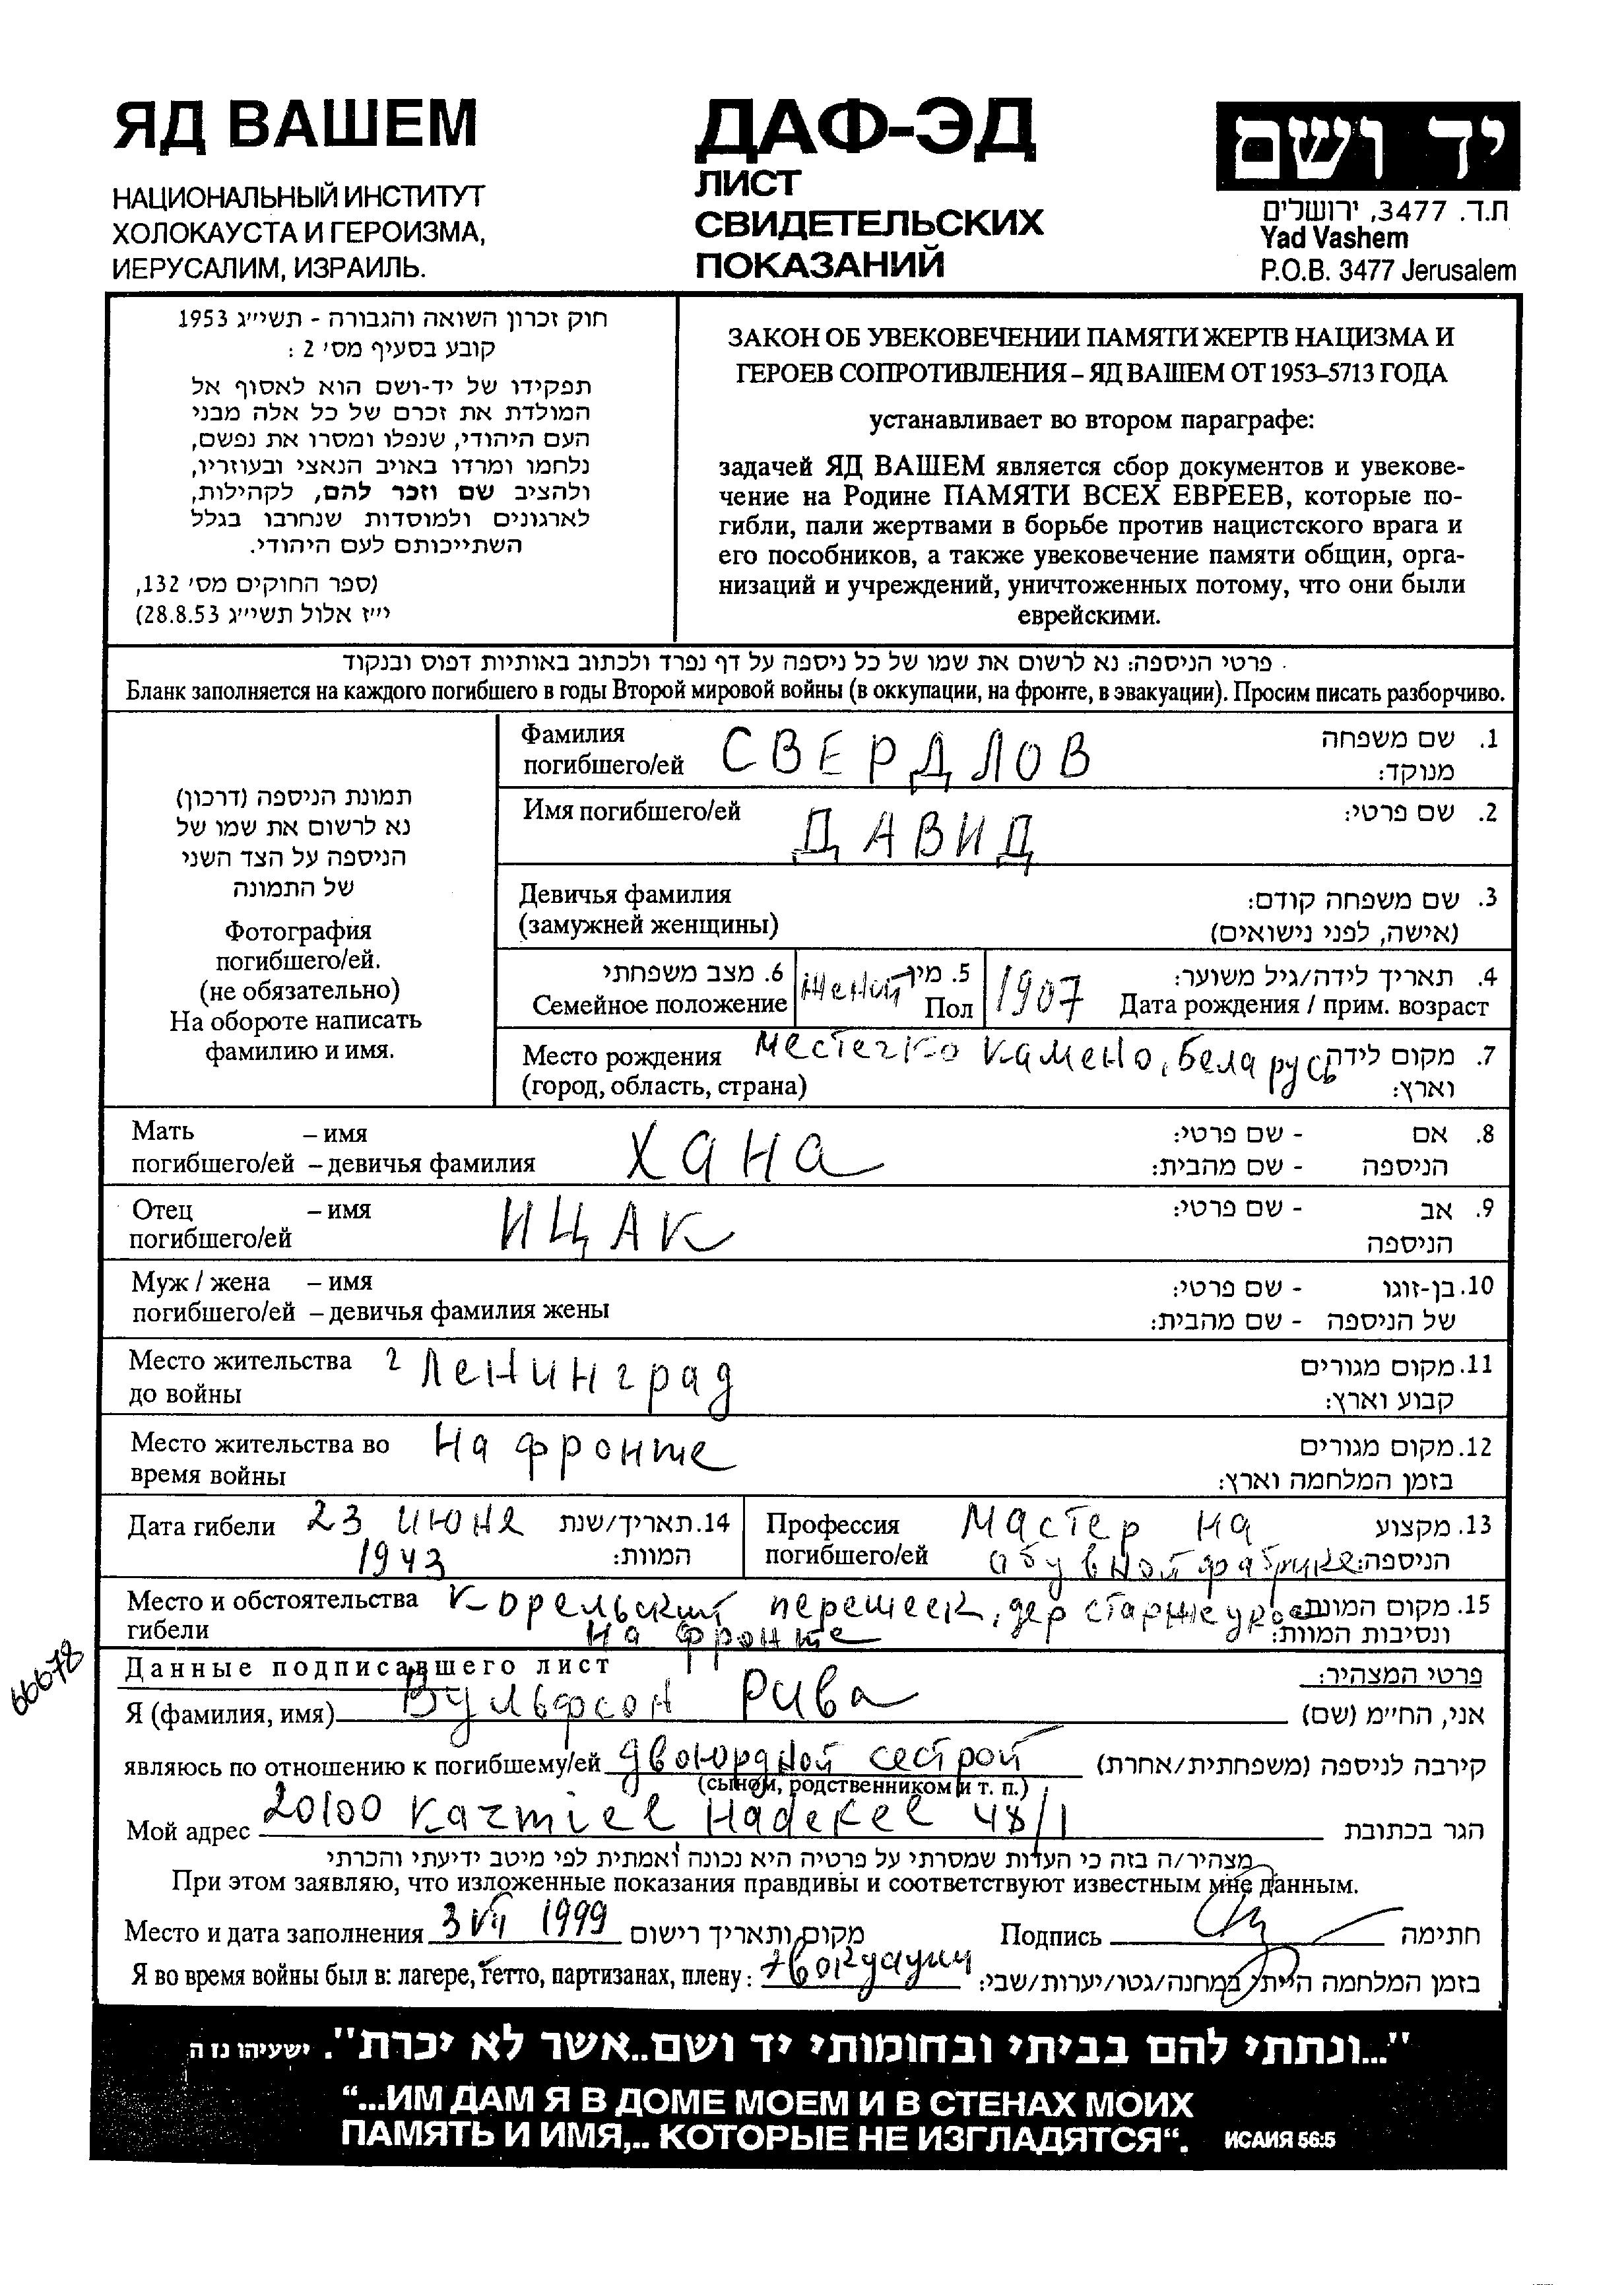 ЯД ВАШЕМ
НАЦИОНАЛЬНЫЙ ИНСТИТУТ
ХОЛОКАУСТА И ГЕРОИЗМА,
ИЕРУСАЛИМ, ИЗРАИЛЬ.
ДАФ-ЭД
ЛИСТ
СВИДЕТЕЛЬСКИХ
ПОКАЗАНИЙ
יד ושם
ת.ד. 3477, ירושלים
Yad Vashem
P.O.B. 3477 Jerusalem
חוק זכרון השואה והגבורה - תשי״ג 1953
קובע בסעיף מס׳ 2 :
תפקידו של יד-ושם הוא לאסוף אל
המולדת את זכרם של כל אלה מבני
העם היהודי, שנפלו ומסרו את נפשם,
נלחמו ומרדו באויב הנאצי ובעוזריו,
ולהציב שם וזכר להם, לקהילות,
לארגונים ולמוסדות שנחרבו בגלל
השתייכותם לעם היהודי.
(ספר החוקים מס׳ 132,
י״ז אלול תשי״ג 28.8.53)
ЗАКОН ОБ УВЕКОВЕЧЕНИИ ПАМЯТИ ЖЕРТВ НАЦИЗМА И
ГЕРОЕВ СОПРОТИВЛЕНИЯ – ЯД ВАШЕМ ОТ 1953–5713 ГОДА
устанавливает во втором параграфе:
задачей ЯД ВАШЕМ является сбор документов и увекове-
чение на Родине ПАМЯТИ ВСЕХ ЕВРЕЕВ, которые по-
гибли, пали жертвами в борьбе против нацистского врага и
его пособников, а также увековечение памяти общин, орга-
низаций и учреждений, уничтоженных потому, что они были
еврейскими.
פרטי הניספה: נא לרשום את שמו של כל ניספה על דף נפרד ולכתוב באותיות דפוס ובנקוד
Бланк заполняется на каждого погибшего в годы Второй мировой войны (в оккупации, на фронте, в эвакуации). Просим писать разборчиво.
תמונת הניספה (דרכון)
נא לרשום את שמו של
הניספה על הצד השני
של התמונה
Фотография
погибшего/ей.
(не обязательно)
На обороте написать
фамилию и имя.
Фамилия погибшего/ей СВЕРДЛОВ 1. שם משפחה
מנוקד:
Имя погибшего/ей ДАВИД 2. שם פרטי:
Девичья фамилия 3. שם משפחה קודם:
(замужней женщины) (אישה, לפני נישואים)
6. מצב משפחתי 5. מין 4. תאריך לידה/גיל משוער:
Семейное положение Пол 1907 Дата рождения / прим. возраст
Место рождения местечко Камено, Беларусь 7. מקום לידה
(город, область, страна) וארץ:
Мать – имя ХАНА 8. אם - שם פרטי:
погибшего/ей – девичья фамилия הניספה - שם מהבית:
Отец – имя ИЦАК 9. אב - שם פרטי:
погибшего/ей הניספה
Муж / жена – имя 10. בן-זוגו - שם פרטי:
погибшего/ей – девичья фамилия жены של הניספה - שם מהבית:
Место жительства г Ленинград 11. מקום מגורים
до войны קבוע וארץ:
Место жительства во На фронте 12. מקום מגורים
время войны בזמן המלחמה וארץ:
Дата гибели 23 июня 14. תאריך/שנת Профессия Мастер на 13. מקצוע
1943 המוות: погибшего/ей обувной фабрике הניספה:
Место и обстоятельства Корельский перешеек, дер 15. מקום המוות
гибели На фронте ונסיבות המוות:
Данные подписавшего лист פרטי המצהיר:
Я (фамилия, имя) Вульфсон Рива אני, הח״מ (שם)
являюсь по отношению к погибшему/ей двоюрдной сестрой קירבה לניספה (משפחתית/אחרת)
(сыном, родственником и т. п.)
Мой адрес 20100 Karmiel Hadekel 48/1 הגר בכתובת
מצהיר/ה בזה כי העדות שמסרתי על פרטיה היא נכונה ואמתית לפי מיטב ידיעתי והכרתי
При этом заявляю, что изложенные показания правдивы и соответствуют известным мне данным.
Место и дата заполнения 3 VII 1999 מקום ותאריך רישום Подпись חתימה
Я во время войны был в: лагере, гетто, партизанах, плену: בזמן המלחמה הייתי במחנה/גטו/יערות/שבי:
66678
"...ונתתי להם בביתי ובחומותי יד ושם..אשר לא יכרת". ישעיהו נז ה
“...ИМ ДАМ Я В ДОМЕ МОЕМ И В СТЕНАХ МОИХ
ПАМЯТЬ И ИМЯ,.. КОТОРЫЕ НЕ ИЗГЛАДЯТСЯ“. ИСАИЯ 56:5